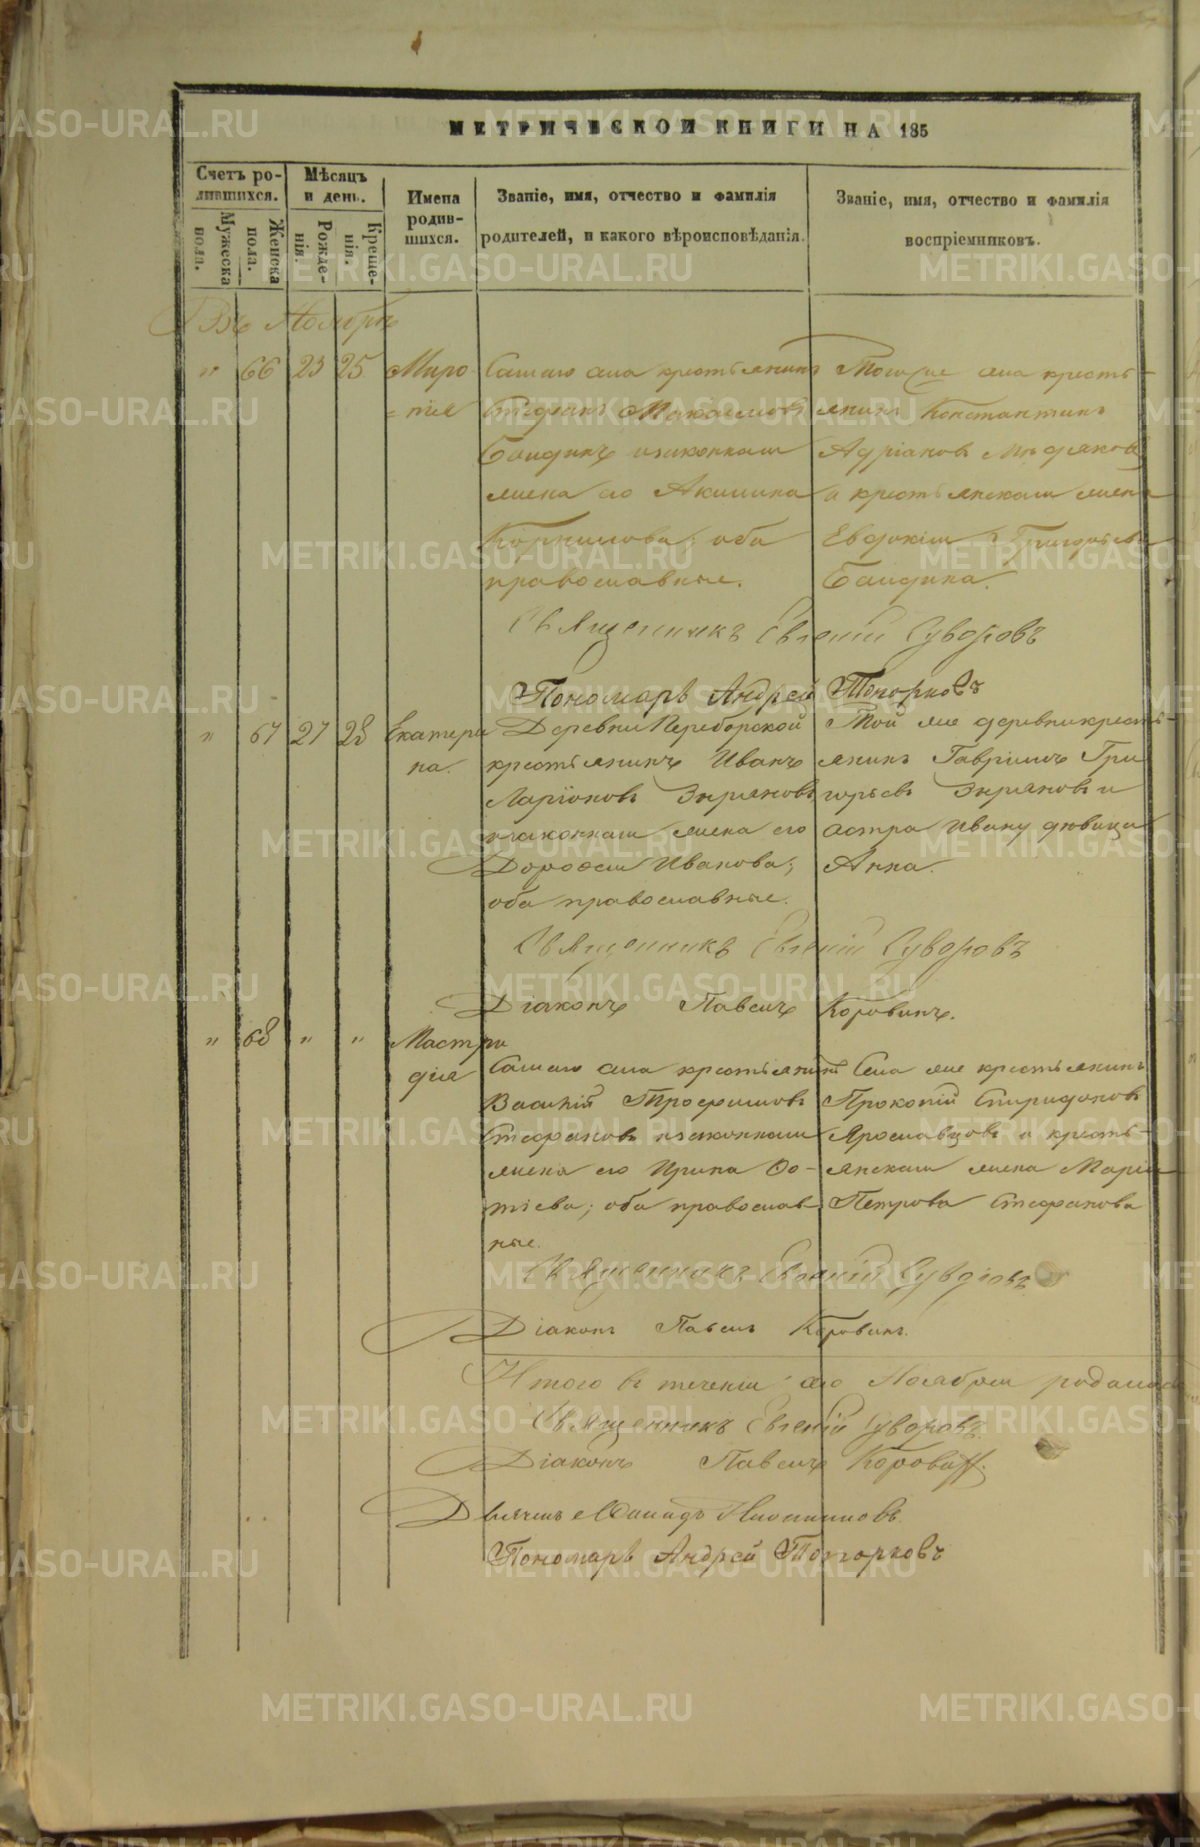 МЕТРИЧЕСКОЙ КНИГИ НА 185
Счетъ ро-
дившихся.
Мужеска
пола.
Женска
пола.
Мѣсяцъ
и день.
Рожде-
нія.
Креще-
нія.
Имена
родив-
шихся.
Званіе, имя, отчество и фамилія
родителей, и какого вѣроисповѣданія.
Званіе, имя, отчество и фамилія
воспріемниковъ.
Въ Ноябрѣ
" 66 23 25 Миро-
пія
села крестьянинъ
Стефанъ
Баидинъ и законная
жена его Акилина
Корнилова; оба
православные.
Тогоже села кресть-
янинъ Константинъ
Адріановъ Медяковъ
и крестьянская жена
Евдокія Григорьева
Баидина.
Священникъ Евгеній Суворовъ
Пономарь Андрей Топорковъ
" 67 27 28 Екатери
на.
Деревни Переборской
крестьянинъ Иванъ
Ларіоновъ Зыряновъ
и законная жена его
Дорофея Иванова;
оба православные.
Той же деревни кресть-
янинъ Гавріилъ Гри
горьевъ Зыряновъ и
сестра Ивану дѣвица
Анна.
Священникъ Евгеній Суворовъ
Діаконъ Павелъ Коровинъ.
" 68 " " Мастри
дія
села крестьянинъ
Василій Трофимовъ
Стефановъ и законная
жена его Ирина Фо-
тіева; оба православ
ные.
Села же крестьянинъ
Прокопій Спиридоновъ
Ярославцовъ и кресть-
янская жена Марія
Петрова Стефанова
Священникъ Евгеній Суворовъ
Діаконъ Павелъ Коровинъ.
Итого въ теченіи Ноября
Священникъ Евгеній Суворовъ.
Діаконъ Павелъ Коровинъ.
Пономарь Андрей Топорковъ
METRIKI.GASO-URAL.RU